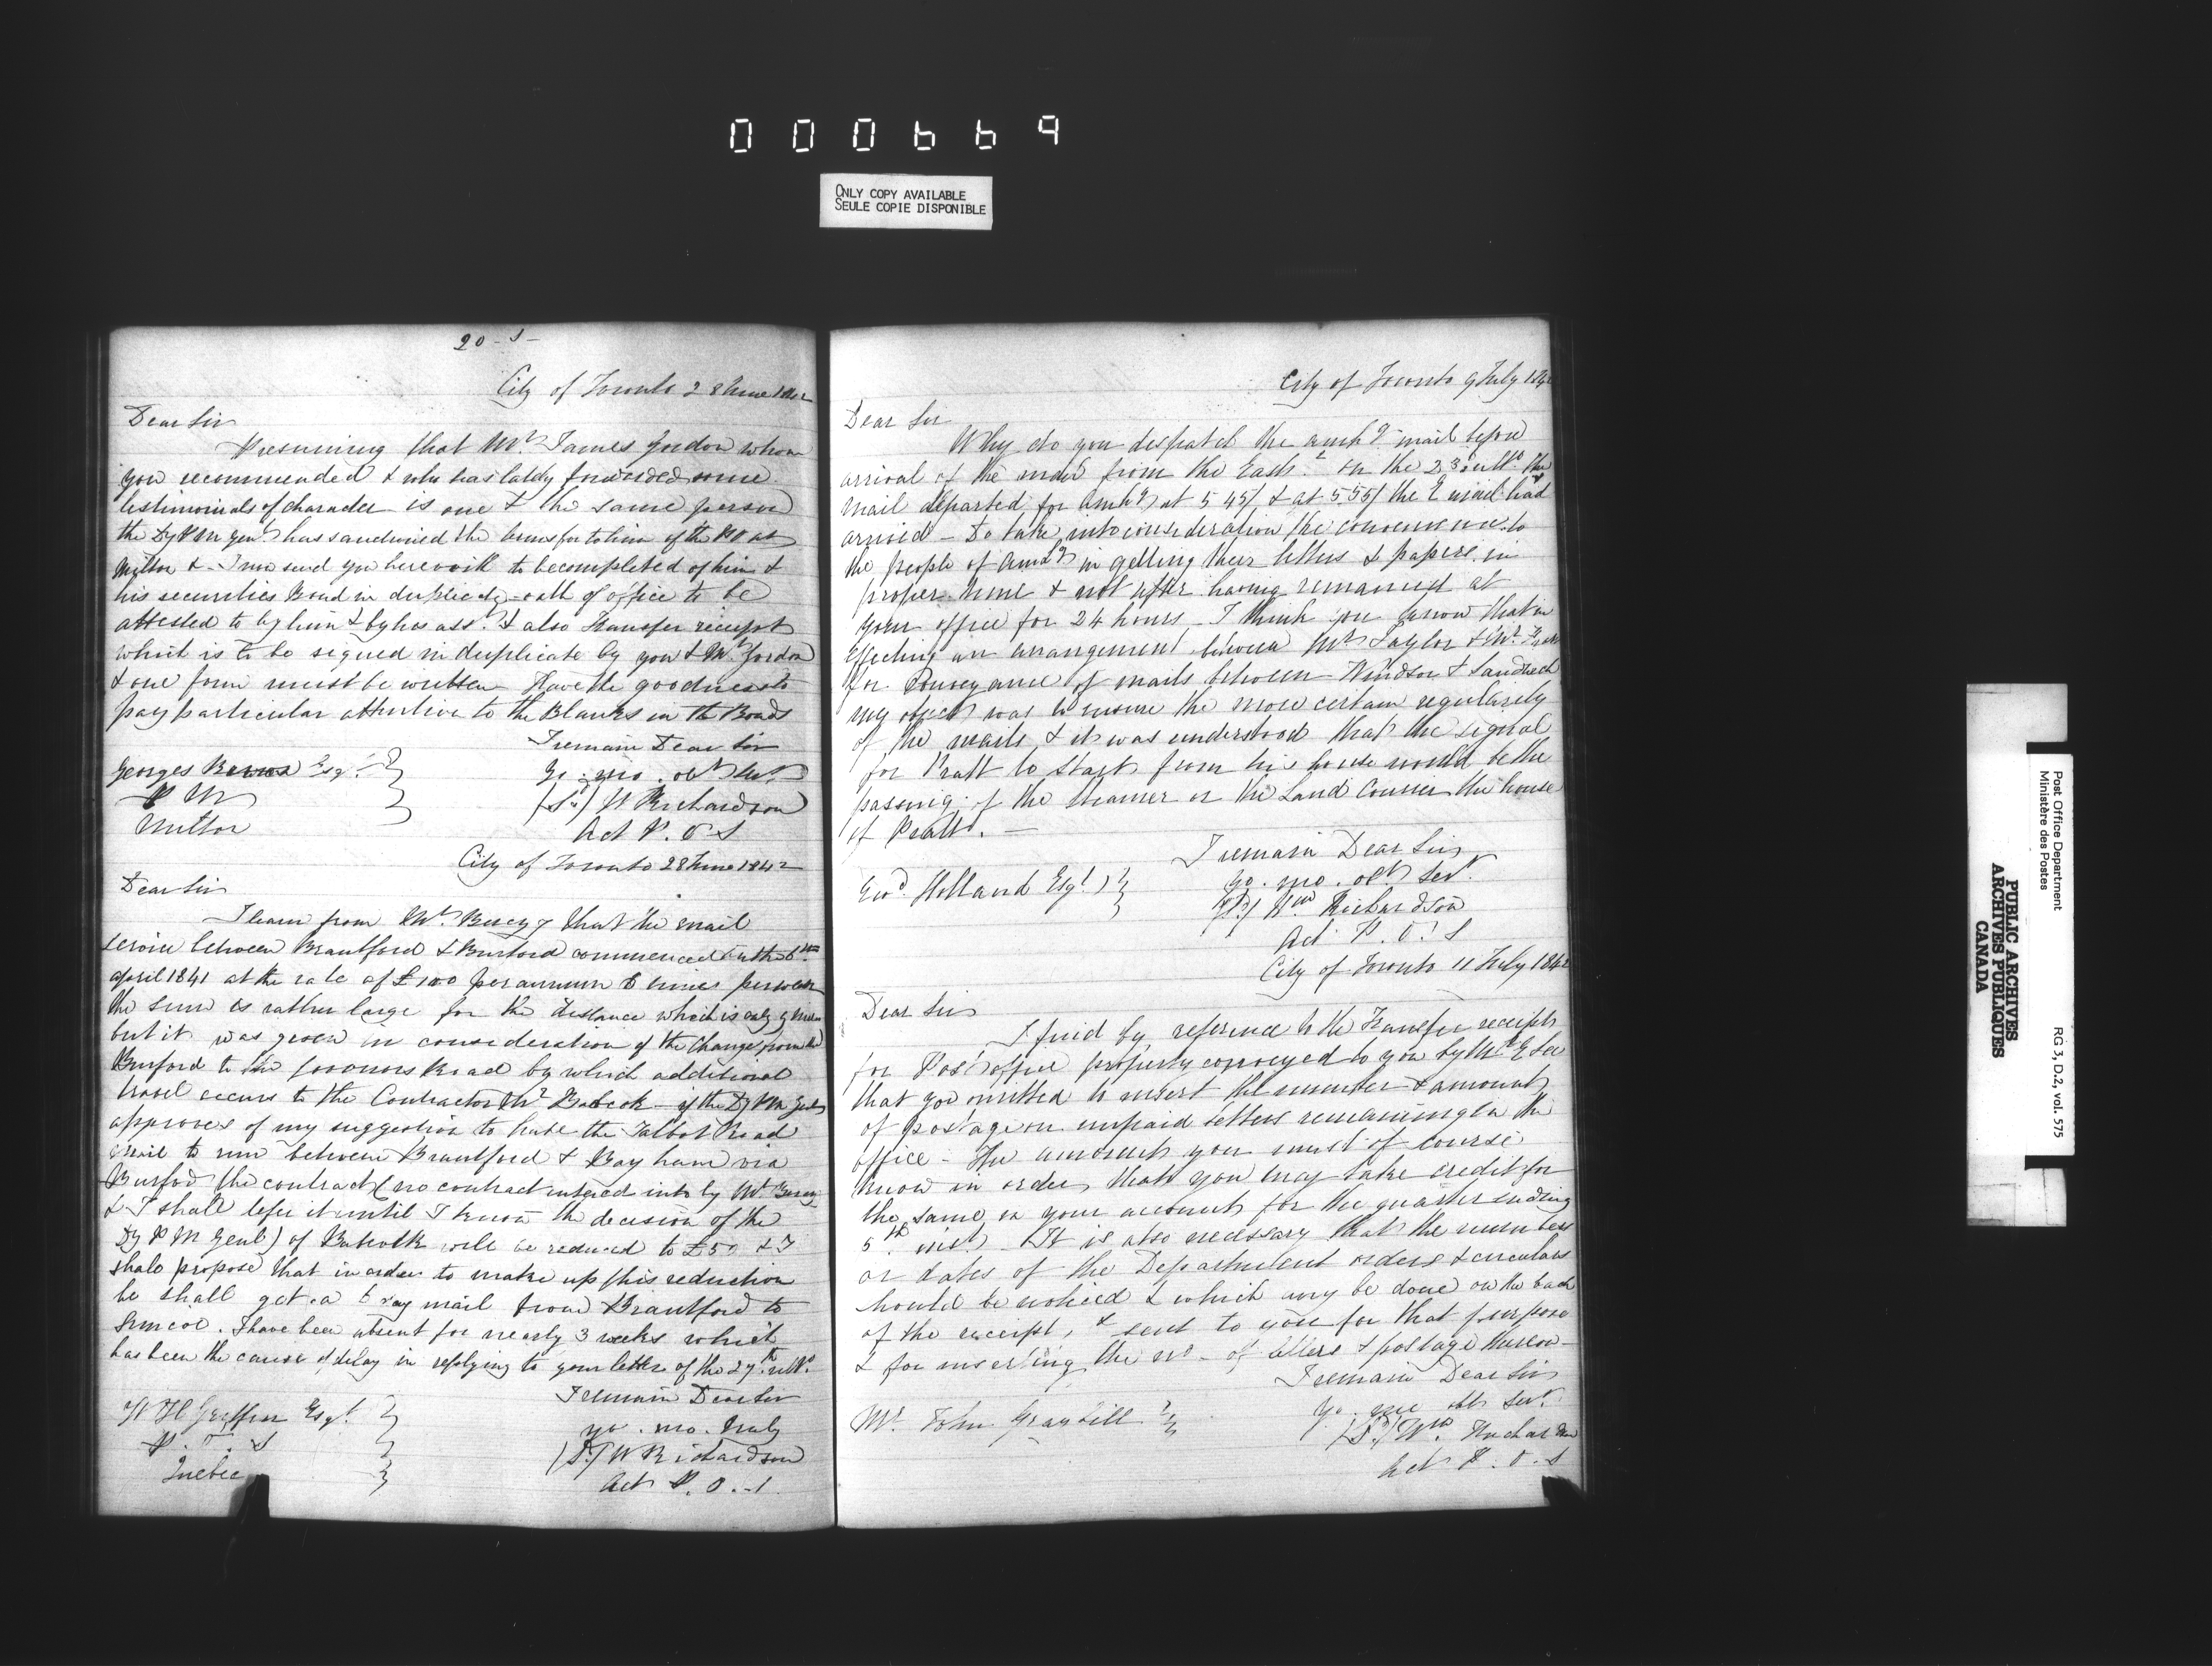 000669
ONLY COPY AVAILABLE
SEULE COPIE DISPONIBLE
20-S-
City of Toronto 28 June 1842
Dear Sir
Presuming that Mr. James Gordon whom
you recommended & who has lately forwarded some
testimonials of character is one & the same person
the Dy P M Genl has sanctioned the transfer to him of the PO at
Milton & I now send you herewith to be completed of him &
his securities Bond in duplicate - oath of office to be
attested to by him & by his asst. & also Transfer receipt
which is to be signed in duplicate by you & Mr. Gordon
& one form must be written Have the goodness to
pay particular attention to the Blanks in the Bonds
I remain Dear Sir
Yo. mo. obt Sert.
Georges Esqr.
(Sd) W Richardson
P M
Act P. O S
Milton
City of Toronto 28 June 1842
Dear Sir
I learn from Mr. Berczy that the mail
service between Brantford & Burford commenced on the 6th
april 1841 at the rate of £100 per annum 6 times per week
the sum is rather large for the distance which is only 9 miles
but it was given in consideration of the change from the
Burford to the Govonors Road by which additional
travel occurs to the Contractor Mr Babcok - if the Dy P M Genl
approves of my suggestion to have the Talbot Road
mail to run between Brantford & Bayham via
Burford the contract (no contract entered into by Mr Berczy
& I shall defer it until I know the decision of the
Dy P M Genl) of Babcock will be reduced to £50 & I
shall propose that in order to make up this reduction
he shall get a 6 day mail from Brantford to
Simcoe. I have been absent for nearly 3 weeks which
has been the cause of delay in replying to your letter of the 27th ulto.
I remain Dear Sir
W H Griffin Esqr.
yo. mo. truly
P. O. S
(Sd) W Richardson
Quebec
Act P. O. S.
City of Toronto 9 July 184
Dear Sir
Why do you despatch the amhg mail before
arrival of the mail from the East? on the 23 ulto the
mail departed for Amhg at 5 45/ & at 5 55/ the E mail had
arrived - Do take into consideration the convenience to
the people of Amhg in getting their letters & papers in
proper time & not after having remained at
your office for 24 hours - I think you know that in
effecting an arrangement between Mr Taylor & Mr Pratt
for Conveyance of mails between Windsor & Sandwich
my object was to ensure the more certain regularity
of the mails & it was understood that the signal
for Pratt to start from his house would be the
passing of the steamer or the Land Courier the house
of Pratt. -
I remain Dear Sir
Geod. Holland Esqr
yo. mo. obt Sert.
(Sd) Wm Richardson
Act P. O. S
City of Toronto 11 July 1842
Dear Sir
I find by reference to the Transfer receipts
for Post office property conveyed to you by Mr
that you omitted to insert the number & amount
of postage on unpaid letters remaining in the
office - The amount you must of course
know in order that you may take credit for
the same in your account for the quarter ending
5th inst. - It is also necessary that the numbers
or dates of the Department orders & circulars
should be noticed & which may be done on the back
of the receipt, & sent to you for that purpose
& for inserting the no - of letters & postage thereon -
I remain Dear Sir
Mr. John Graybill
yo. mo obt Sert.
(Sd) Wm. Richardson
Act P. O. S
Post Office Department
Ministère des Postes
RG 3, D.2, vol. 575
PUBLIC ARCHIVES
ARCHIVES PUBLIQUES
CANADA